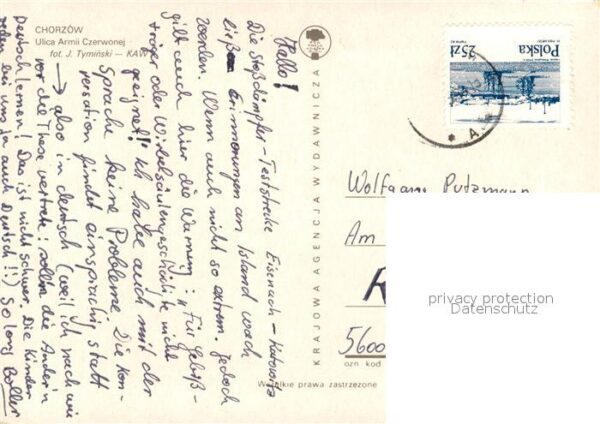 CHORZÓW
Ulica Armii Czerwonej
fot. J. Tymiński — KAW
Hallo!
Die Stoßdämpfer-Teststrecke Eisenach-Katowice
ließen Erinnerungen an Island wach
werden. Wenn auch nicht so extrem. Jedoch
gilt auch hier die Warnung: "Für Gebiß-
träger oder Wirbelsäulengeschädigte nicht
geeignet! Ich habe auch mit der
Sprache keine Probleme. Die Kon-
versation findet einsprachig statt
→ also in deutsch (weil ich nach wie
vor die These vertrete: soll'n die Ander'n
Deutsch lernen! Das ist nicht schwer. Die Kinder
reden bei uns ja auch Deutsch!!) So long
KRAJOWA AGENCJA WYDAWNICZA
25 ZŁ
Polska
Wolfgang Putzmann
Am
5600
ozn kod
Wszelkie prawa zastrzeżone
privacy protection
Datenschutz